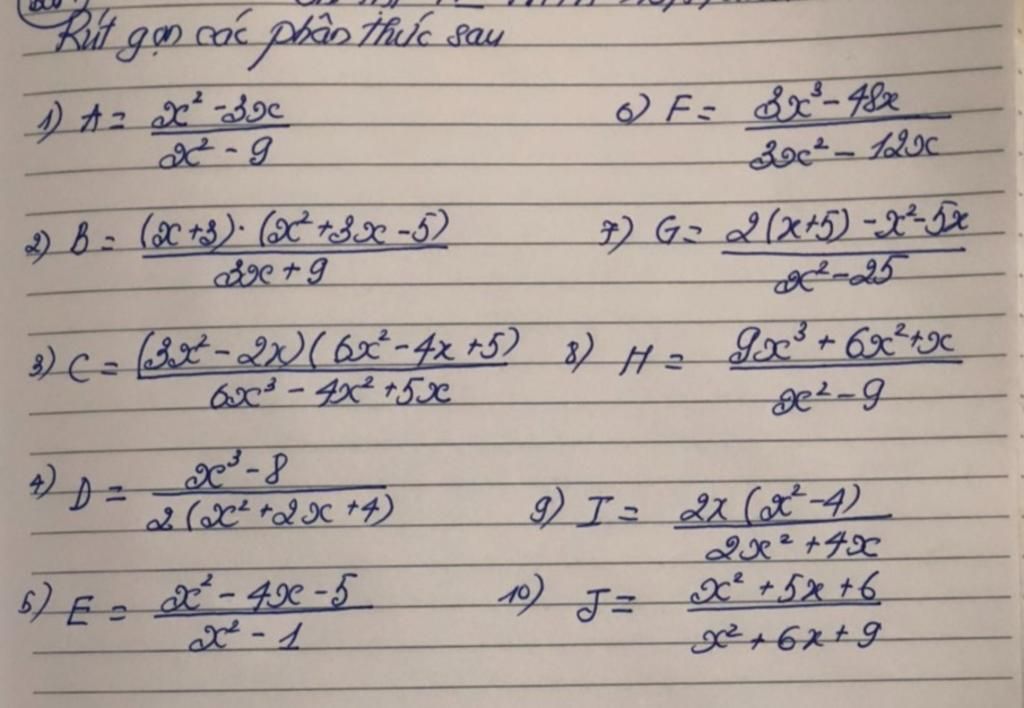 Rút gọn các phân thức sau
1) A = (x² - 3x)/(x² - 9)
6) F = (3x³ - 48x)/(3x² - 12x)
2) B = ((x+3)·(x²+3x-5))/(3x+9)
7) G = (2(x+5) - x² - 5x)/(x² - 25)
3) C = ((3x² - 2x)(6x² - 4x + 5))/(6x³ - 4x² + 5x)
8) H = (9x³ + 6x² + x)/(x² - 9)
4) D = (x³ - 8)/(2(x² + 2x + 4))
9) I = (2x(x² - 4))/(2x² + 4x)
5) E = (x² - 4x - 5)/(x² - 1)
10) J = (x² + 5x + 6)/(x² + 6x + 9)